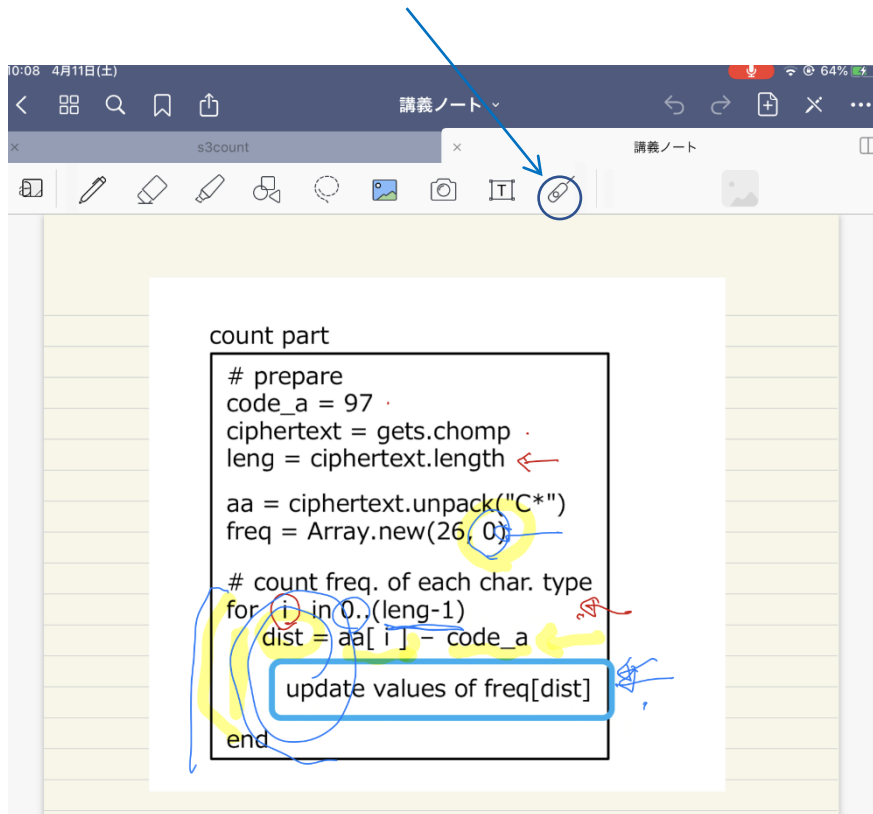 10:08 4月11日(土) 64%
講義ノート
s3count
講義ノート
T
count part
# prepare
code_a = 97
ciphertext = gets.chomp
leng = ciphertext.length
aa = ciphertext.unpack("C*")
freq = Array.new(26, 0)
# count freq. of each char. type
for i in 0..(leng-1)
dist = aa[ i ] – code_a
update values of freq[dist]
end